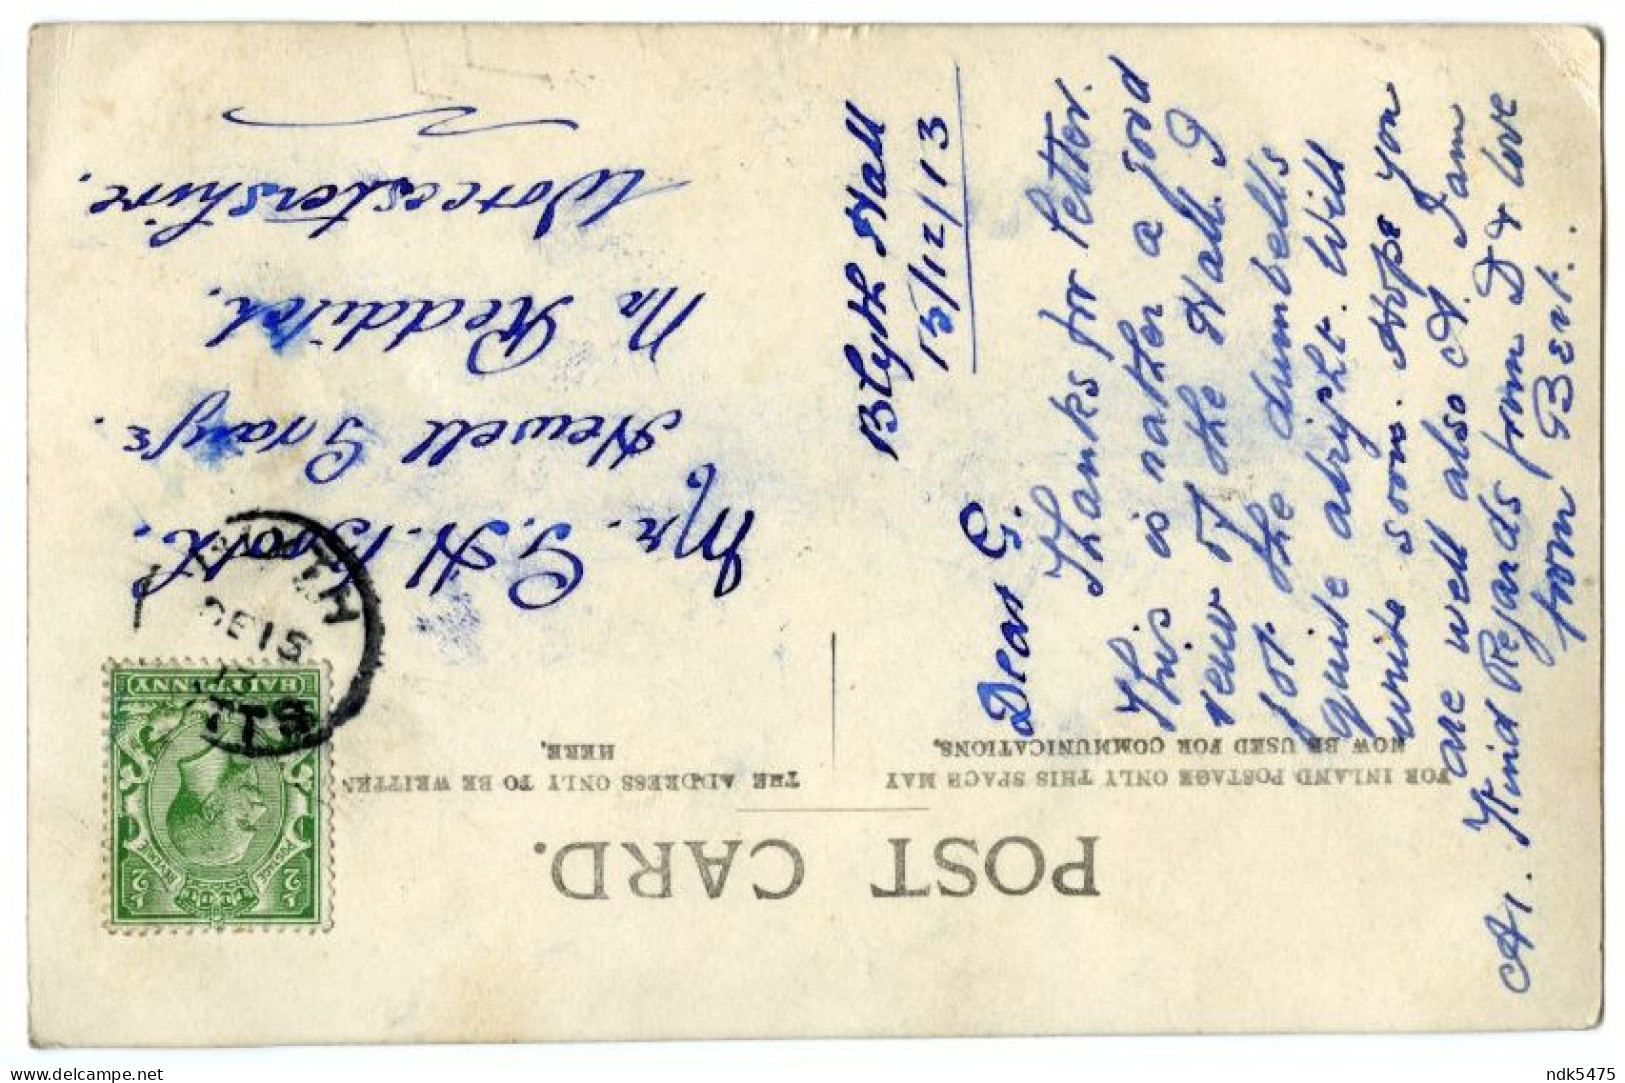 POST CARD.
FOR INLAND POSTAGE ONLY THIS SPACE MAY
NOW BE USED FOR COMMUNICATIONS,
THE ADDRESS ONLY TO BE WRITTEN
HERE,
Blyth Hall
15/12/13
Dear G.
Thanks for letter.
This is rather a good
view of the Hall. I
got the dumbells
quite alright. Will
write soon. Hope you
are well also A. I am
A1. Kind Regards from D & love
from Bert.
Mr. G. H. Brott.
Hewell Grange.
Nr Redditch.
Worcestershire.
POSTAGE
REVENUE
1/2
1/2
HALFPENNY
DE 15
13
ndk5475